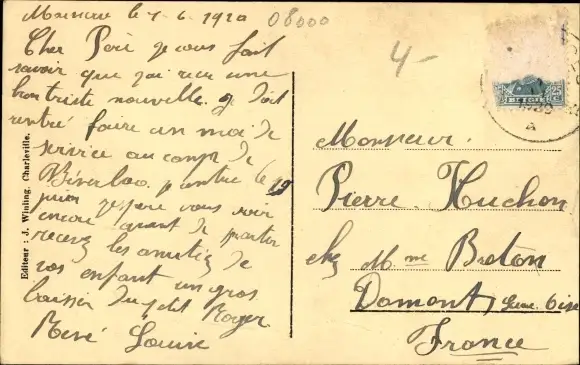 le 1-6-1920
08000
Cher Père je vous fait
savoir que j'ai recu une
bien triste nouvelle. je doit
rentré faire un moi de
service au camp de
Béverloo. j'entre le 19
juin j'espere vous voir
encore avant de partir
recevez les amitiez de
vos enfant un gros
baisser du ptit Roger
René Louise
Editeur : J. Winling, Charleville.
4-
25
BELGIE
C
A
Monsieur
Pierre Huchon
chez Mme Breton
Domont Seine Oise
France